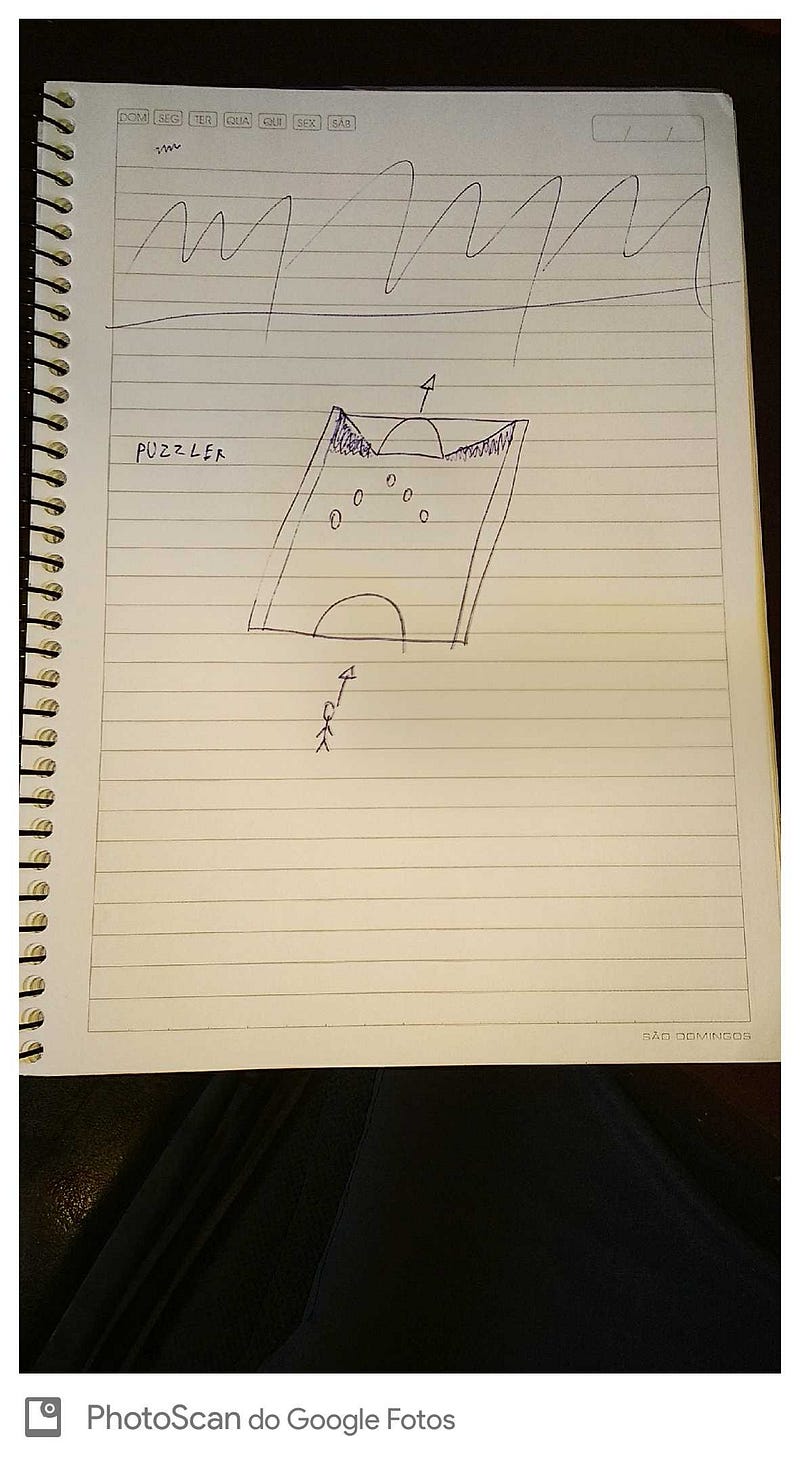 DOM SEG TER QUA QUI SEX SÁB
/ /
PUZZLER
SÃO DOMINGOS
PhotoScan do Google Fotos